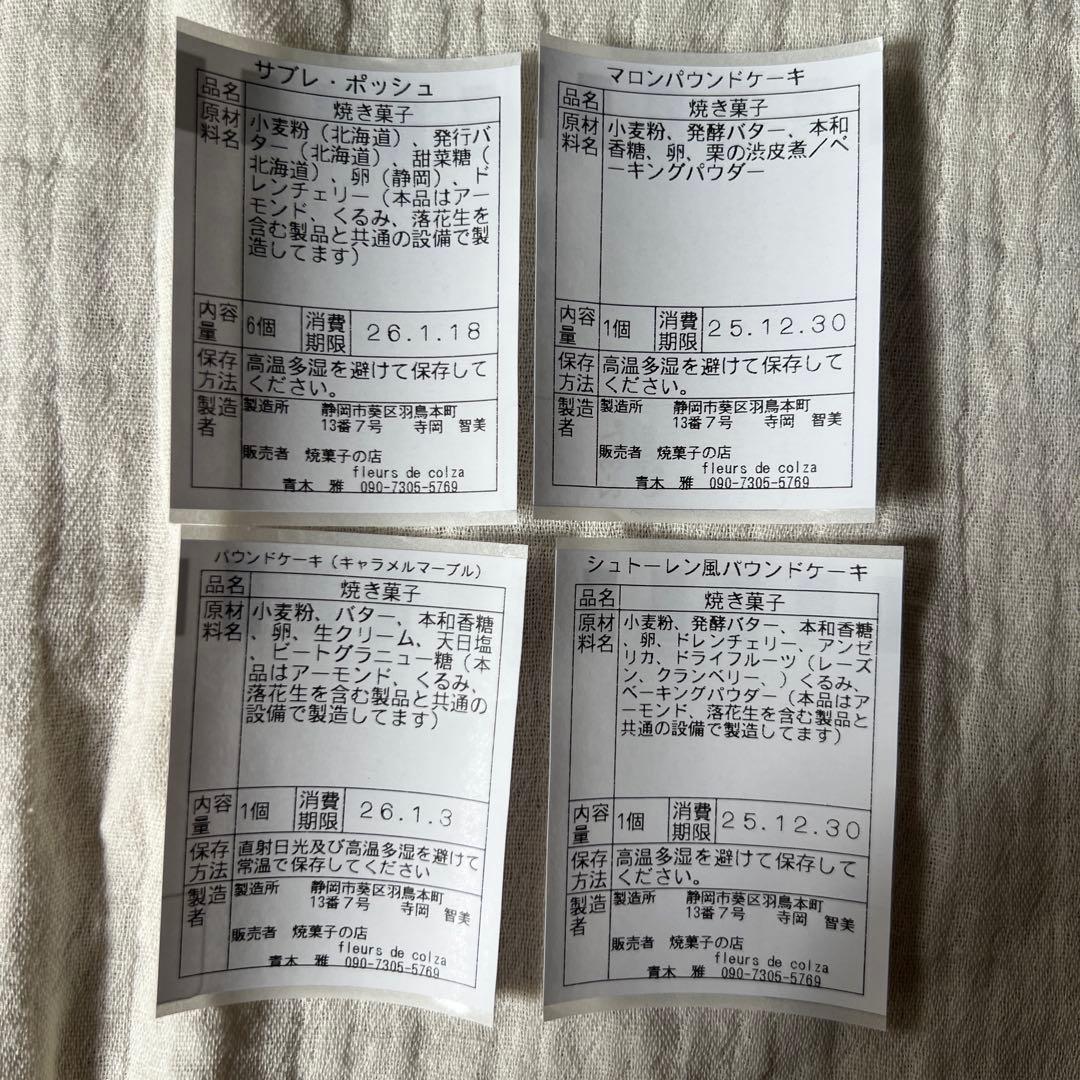 サブレ・ポッシュ
品名 焼き菓子
原材料名 小麦粉（北海道）、発行バ
ター（北海道）、甜菜糖（
北海道）、卵（静岡）、ド
レンチェリー（本品はアー
モンド、くるみ、落花生を
含む製品と共通の設備で製
造してます）
内容量 6個 消費期限 26.1.18
保存方法 高温多湿を避けて保存して
ください。
製造者 製造所 静岡市葵区羽鳥本町
13番7号 寺岡 智美
販売者 焼菓子の店
fleurs de colza
青木 雅 090-7305-5769
マロンパウンドケーキ
品名 焼き菓子
原材料名 小麦粉、発酵バター、本和
香糖、卵、栗の渋皮煮／ベ
ーキングパウダー
内容量 1個 消費期限 25.12.30
保存方法 高温多湿を避けて保存して
ください。
製造者 製造所 静岡市葵区羽鳥本町
13番7号 寺岡 智美
販売者 焼菓子の店
fleurs de colza
青木 雅 090-7305-5769
パウンドケーキ（キャラメルマーブル）
品名 焼き菓子
原材料名 小麦粉、バター、本和香糖
、卵、生クリーム、天日塩
、ビートグラニュー糖（本
品はアーモンド、くるみ、
落花生を含む製品と共通の
設備で製造してます）
内容量 1個 消費期限 26.1.3
保存方法 直射日光及び高温多湿を避けて
常温で保存してください
製造者 製造所 静岡市葵区羽鳥本町
13番7号 寺岡 智美
販売者 焼菓子の店
fleurs de colza
青木 雅 090-7305-5769
シュトーレン風パウンドケーキ
品名 焼き菓子
原材料名 小麦粉、発酵バター、本和香糖
、卵、ドレンチェリー、アンゼ
リカ、ドライフルーツ（レーズ
ン、クランベリー、）くるみ、
ベーキングパウダー（本品はア
ーモンド、落花生を含む製品と
共通の設備で製造してます）
内容量 1個 消費期限 25.12.30
保存方法 高温多湿を避けて保存して
ください。
製造者 製造所 静岡市葵区羽鳥本町
13番7号 寺岡 智美
販売者 焼菓子の店
fleurs de colza
青木 雅 090-7305-5769